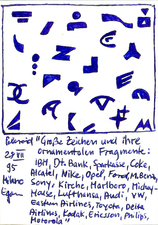 Benoid "Große Zeichen und ihre
28 VII ornamentalen Fragmente:
95 IBM, Dt. Bank, Sparkasse, Coke,
Milano Alcatel, Nike, Opel, Ford, M.Benz,
Sony, Kirche, Marlboro, Mickey-
Mouse, Lufthansa, Audi, VW,
Eastern Airlines, Toyota, Delta
Airlines, Kodak, Ericsson, Philips,
Motorola"